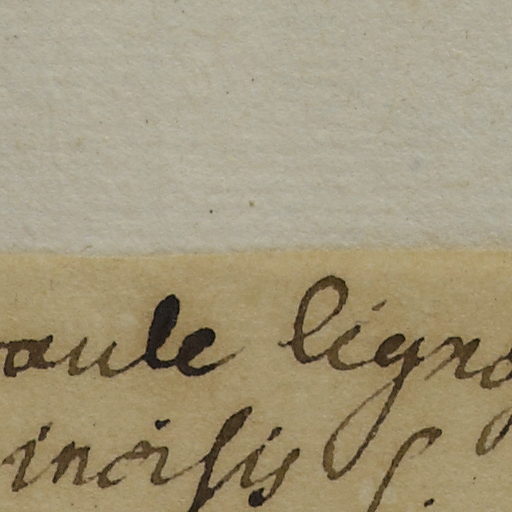 aule ligno
incisis